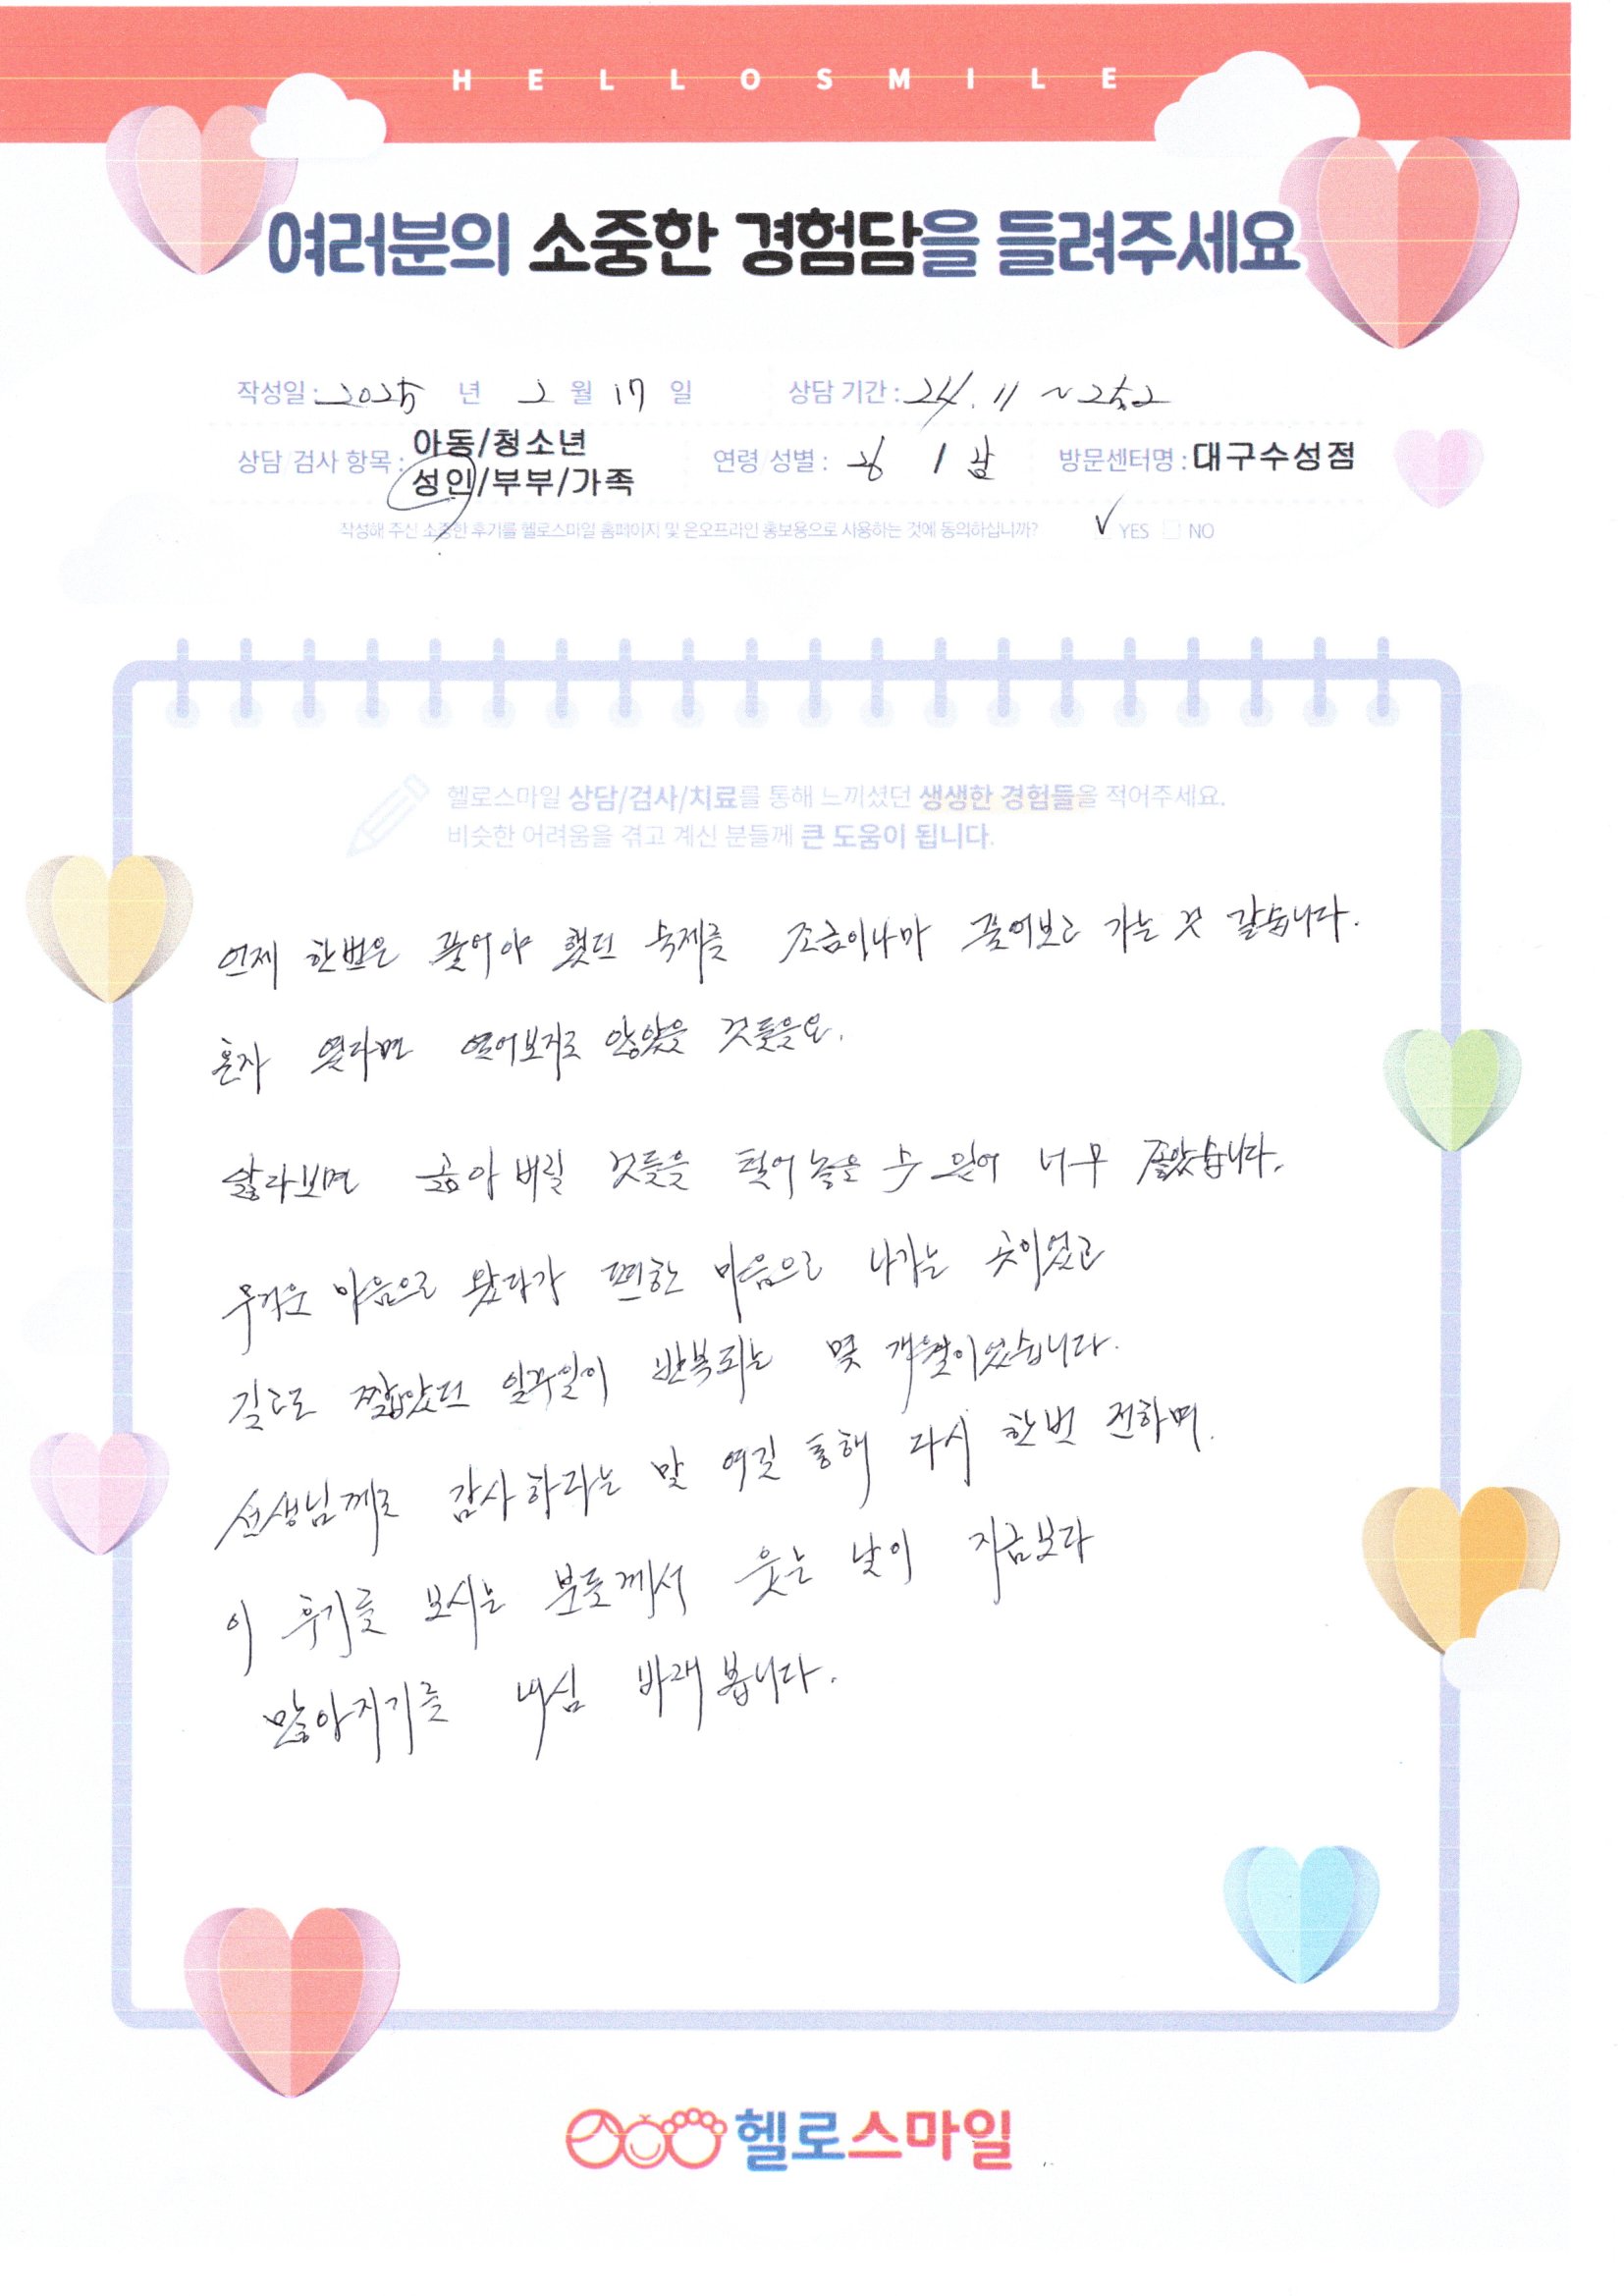 HELLOSMILE
여러분의 소중한 경험담을 들려주세요
작성일 : 2025 년 2 월 17 일 상담 기간 : 24. 11 ~ 25.2
상담 검사 항목 : 아동/청소년
성인/부부/가족
연령 성별 : 26 / 남 방문센터명 : 대구수성점
작성해 주신 소중한 후기를 헬로스마일 홈페이지 및 온오프라인 홍보용으로 사용하는 것에 동의하십니까? ✓ YES NO
헬로스마일 상담/검사/치료를 통해 느끼셨던 생생한 경험들을 적어주세요.
비슷한 어려움을 겪고 계신 분들께 큰 도움이 됩니다.
언제 한번은 풀어야 했던 숙제를 조금이나마 풀어보고 가는 것 같습니다.
혼자 였다면 열어보지도 않았을 것들을요.
앓다보면 곪아 버릴 것들을 털어 놓을 수 있어 너무 좋았습니다.
무거운 마음으로 왔다가 편한 마음으로 나가는 곳이었고
길고도 짧았던 일주일이 반복되는 몇 개월이었습니다.
선생님께도 감사하다는 말 여길 통해 다시 한번 전하며.
이 후기를 보시는 분들께서 웃는 날이 지금보다
많아지기를 내심 바래봅니다.
헬로스마일